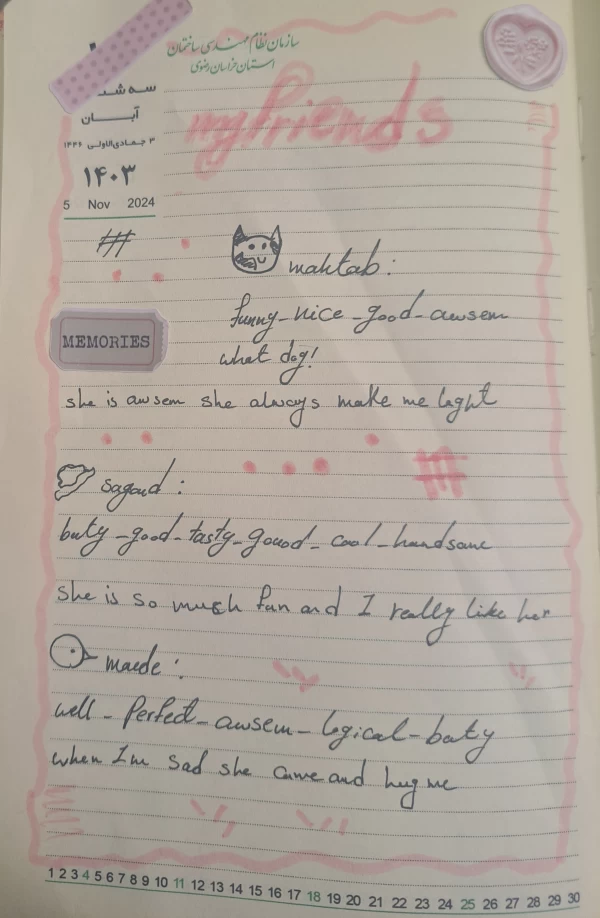 سازمان نظام مهندسی ساختمان
استان خراسان رضوی
سه شد
آبــان
۳ جمادی‌الاولی ۱۴۴۶
۱۴۰۳
5 Nov 2024
my friends
mahtab:
funny-nice-good-awsem
MEMORIES
what dog!
she is awsem she always make me laght
sagoud:
buty-good-tasty-gouod-cool-handsome
she is so much fun and I really like her
maede:
well-Perfect-awsem-logical-buty
when Im sad she came and hug me
1 2 3 4 5 6 7 8 9 10 11 12 13 14 15 16 17 18 19 20 21 22 23 24 25 26 27 28 29 30